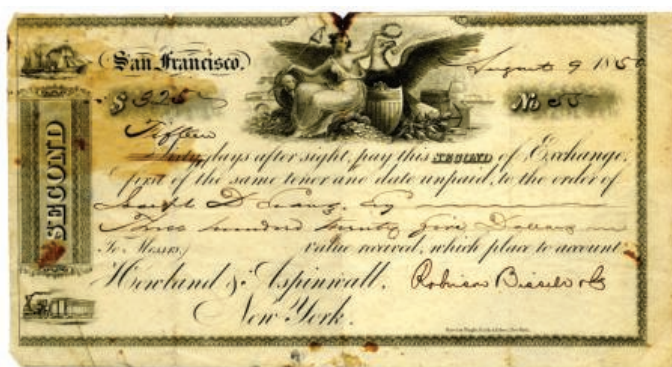 San Francisco, August 9 1850
$ 325 No 55
SECOND
Fifteen
Sixty days after sight, pay this SECOND of Exchange,
first of the same tenor and date unpaid, to the order of
Joseph D
Three hundred twenty five Dollars
To Messrs. value received, which place to account
Howland & Aspinwall. Robinson Bissell & Co
New York.